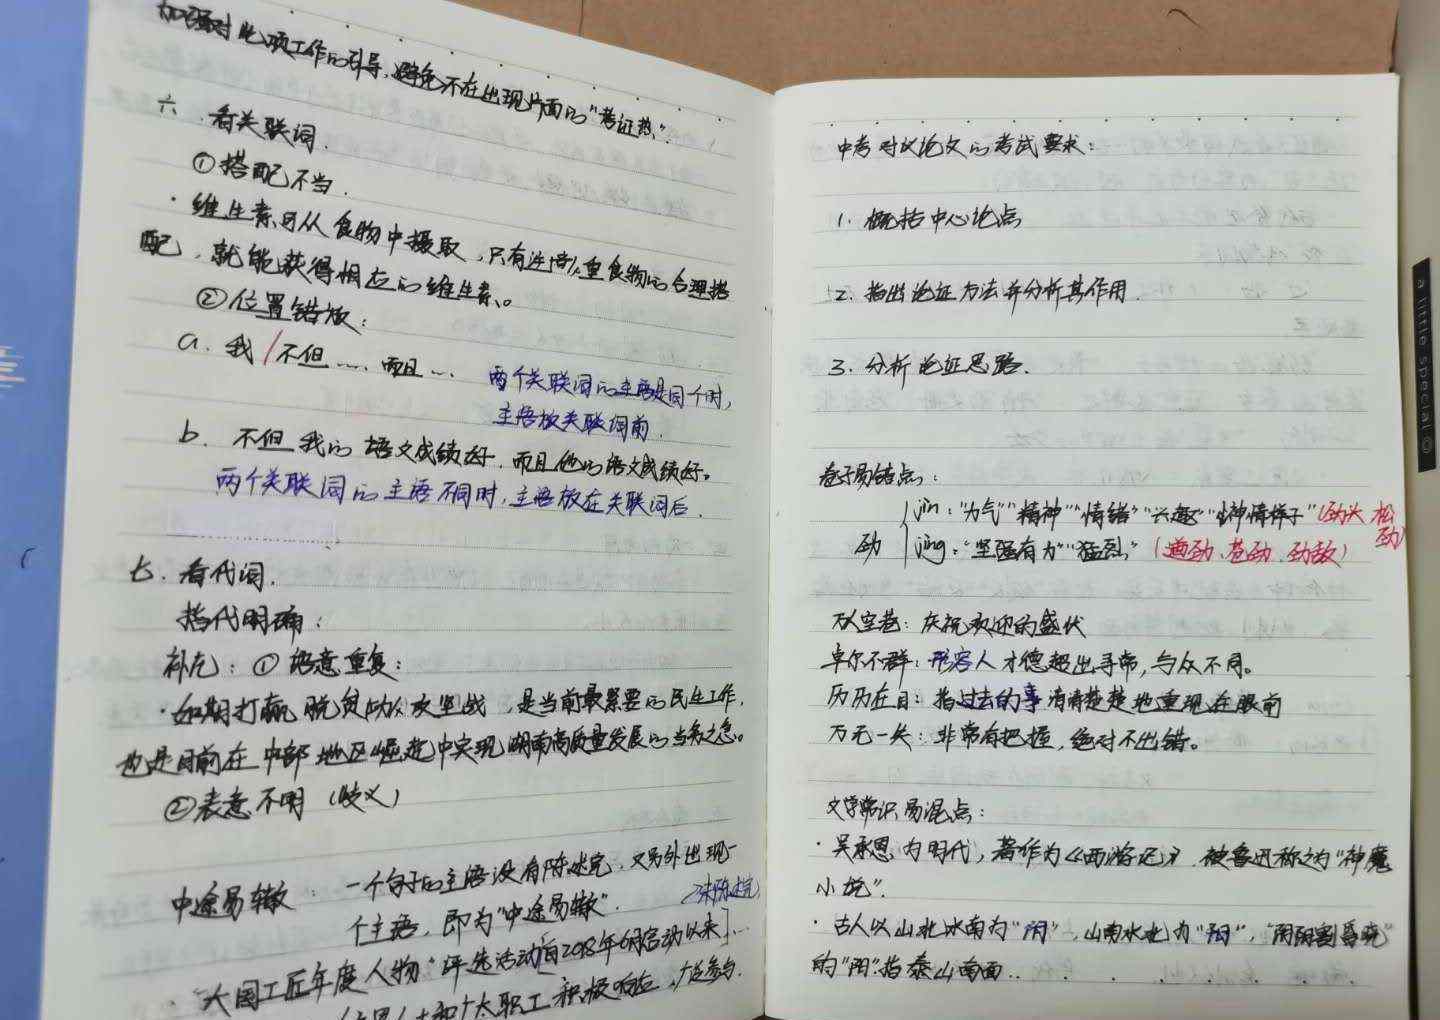 加强对此项工作的引导,避免不在出现片面的"考证热"。
六、看关联词.
①搭配不当.
·维生素可从食物中摄取,只有注意食物的合理搭
配,就能获得相应的维生素。
②位置错放:
a. 我/不但……而且…
两个关联词的主语是同个时,
主语放关联词前.
b. 不但我的语文成绩好,而且他的语文成绩好。
两个关联词的主语不同时,主语放在关联词后.
七、看代词.
指代明确:
补充:①语意重复:
·如期打赢脱贫攻坚战,是当前最紧要的民生工作,
也是目前在中部地区崛起中实现湖南高质量发展的当务之急。
②表意不明(歧义)
中途易辙:一个句子的主语没有陈述完,又另外出现一
个主语,即为"中途易辙".
未陈述完
·"大国工匠年度人物"评选活动[自2018年6月启动以来]…
和广大职工积极响应,广泛参与.
中考对议论文的考试要求:
1. 概括中心论点
2. 指出论证方法并分析其作用.
3. 分析论证思路.
卷子易错点:
劲 jìn:"力气""精神""情绪""兴趣""神情样子"(劲头、松劲)
jìng:"坚强有力""猛烈"(遒劲、苍劲、劲敌)
万人空巷:庆祝欢迎的盛状
卓尔不群:形容人才德超出寻常,与众不同。
历历在目:指过去的事清清楚楚地重现在眼前
万无一失:非常有把握,绝对不出错。
文学常识易混点:
·吴承恩为明代,著作为《西游记》,被鲁迅称之为"神魔
小说".
·古人以山北水南为"阴",山南水北为"阳","阴阳割昏晓"
的"阳"指泰山南面..
a little special